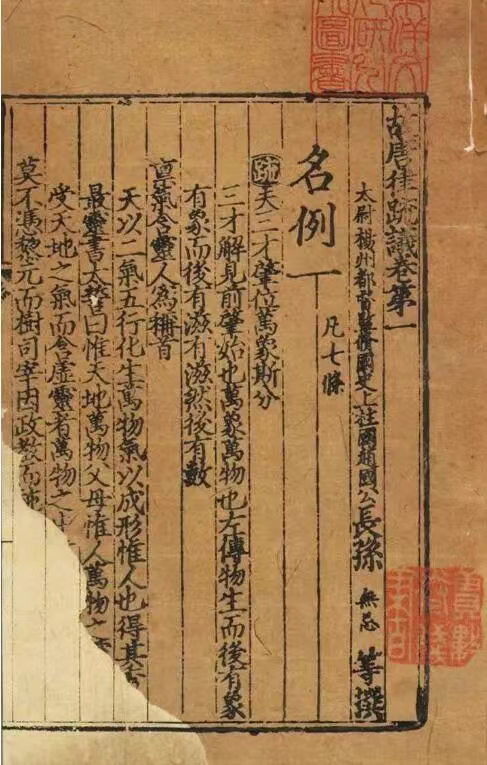 故唐律疏議卷第一
太尉楊州都督監修國史上柱國趙國公長孫無忌等撰
名例一 凡七條
疏夫三才肇位萬象斯分
三才解見前肇始也萬象萬物也左傳物生而後有象
有象而後有滋有滋然後有數
稟氣含靈人爲稱首
天以二氣五行化生萬物氣以成形惟人也得其
最靈書太誓曰惟天地萬物父母惟人萬物之
受天地之氣而含虛靈者萬物之
莫不憑黎元而樹司宰因政教而